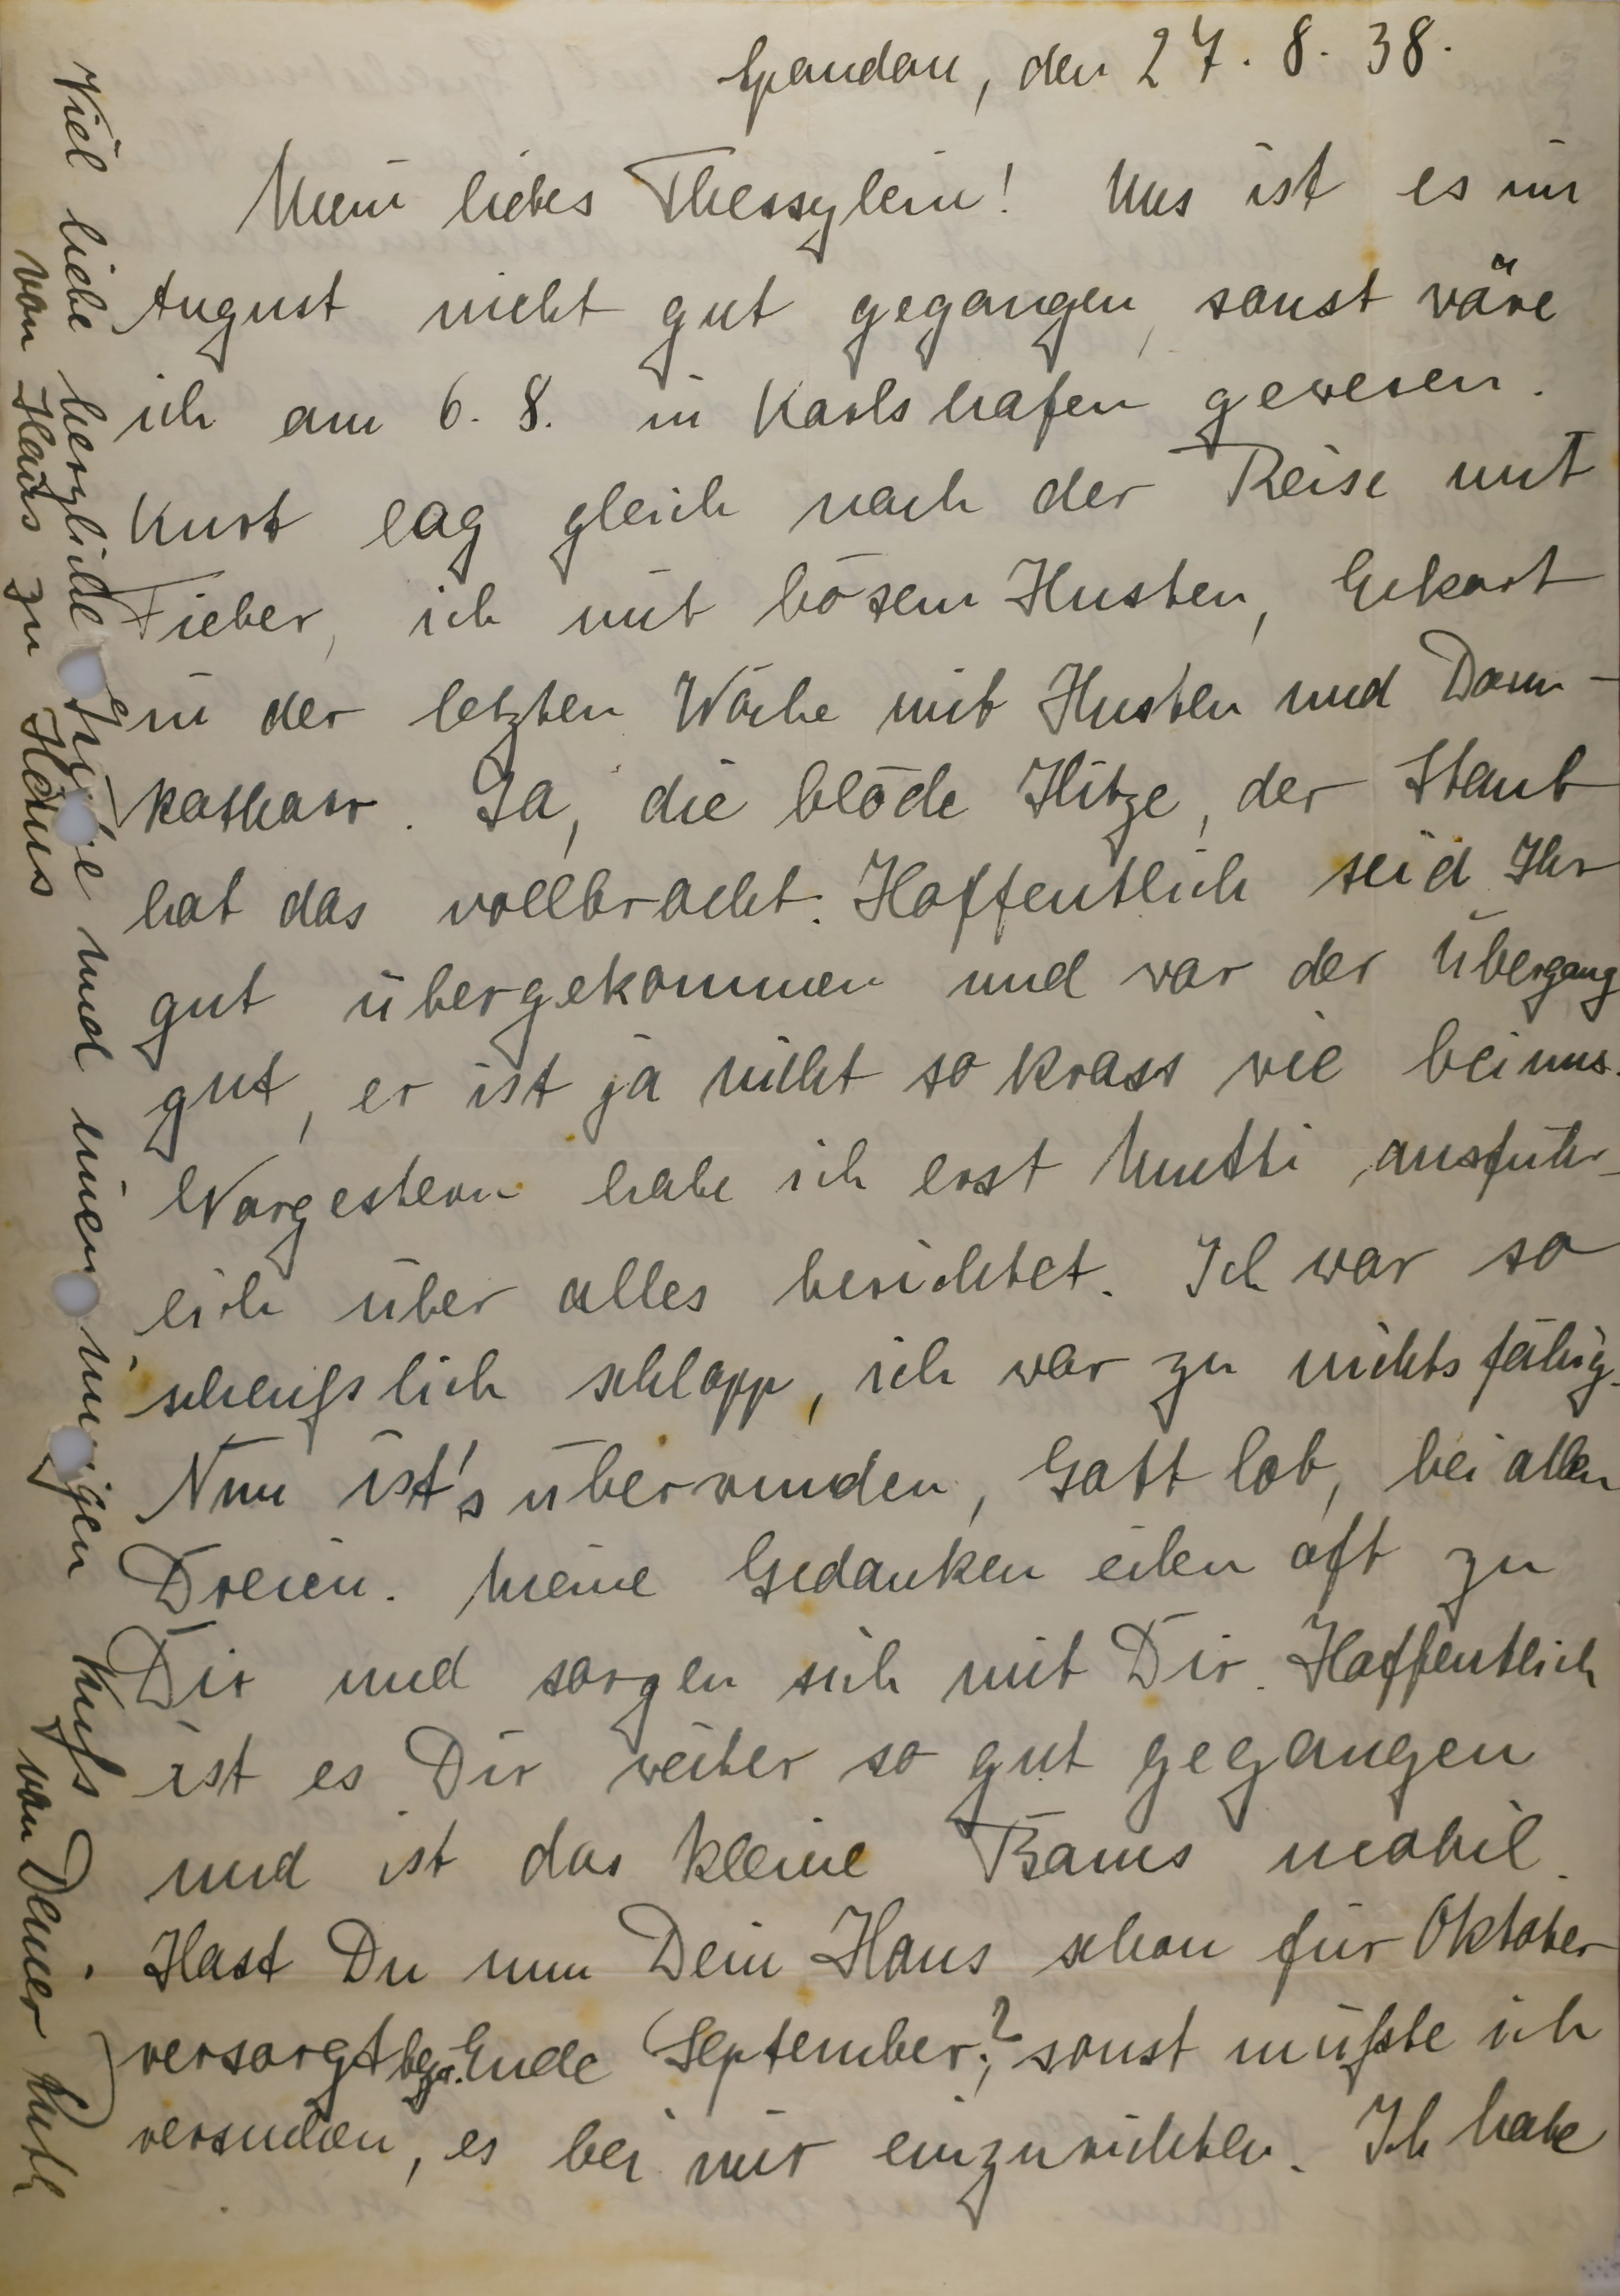 Spandau, den 27. 8. 38.
Mein liebes Thessylein! Uns ist es im
August nicht gut gegangen, sonst wäre
ich am 6. 8. in Karlshafen gewesen.
Kurt lag gleich nach der Reise mit
Fieber, ich mit bösem Husten, Eckart
in der letzten Woche mit Husten und Darm-
kathaar. Ja, die blöde Hitze, der Staub
hat das vollbracht. Hoffentlich seid Ihr
gut übergekommen und war der Übergang
gut, er ist ja nicht so krass wie bei uns.
Vorgestern habe ich erst Mutti ausführ-
lich über alles berichtet. Ich war so
scheußlich schlapp, ich war zu nichts fähig.
Nun ist's überwunden, Gott lob, bei allen
Dreien. Meine Gedanken eilen oft zu
Dir und sorgen sich mit Dir. Hoffentlich
ist es Dir weiter so gut gegangen
und ist das kleine Bams mobil.
Hast Du nun Dein Haus schon für Oktober
versorgt bezw. Ende September?, sonst müßte ich
versuchen, es bei mir einzurichten. Ich habe
Viel liebe herzliche Grüße und einen innigen Kuß
von Haus zu Haus
von Deiner Ruth